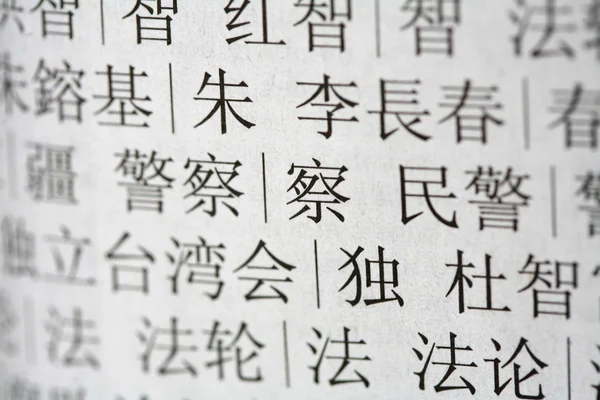 智 | 智 红智 | 智 法
朱鎔基 | 朱 李長春 | 春
| 疆 警察 | 察 民警 | 警
独立台湾会 | 独 杜智
| 法 法轮 | 法 法论 |